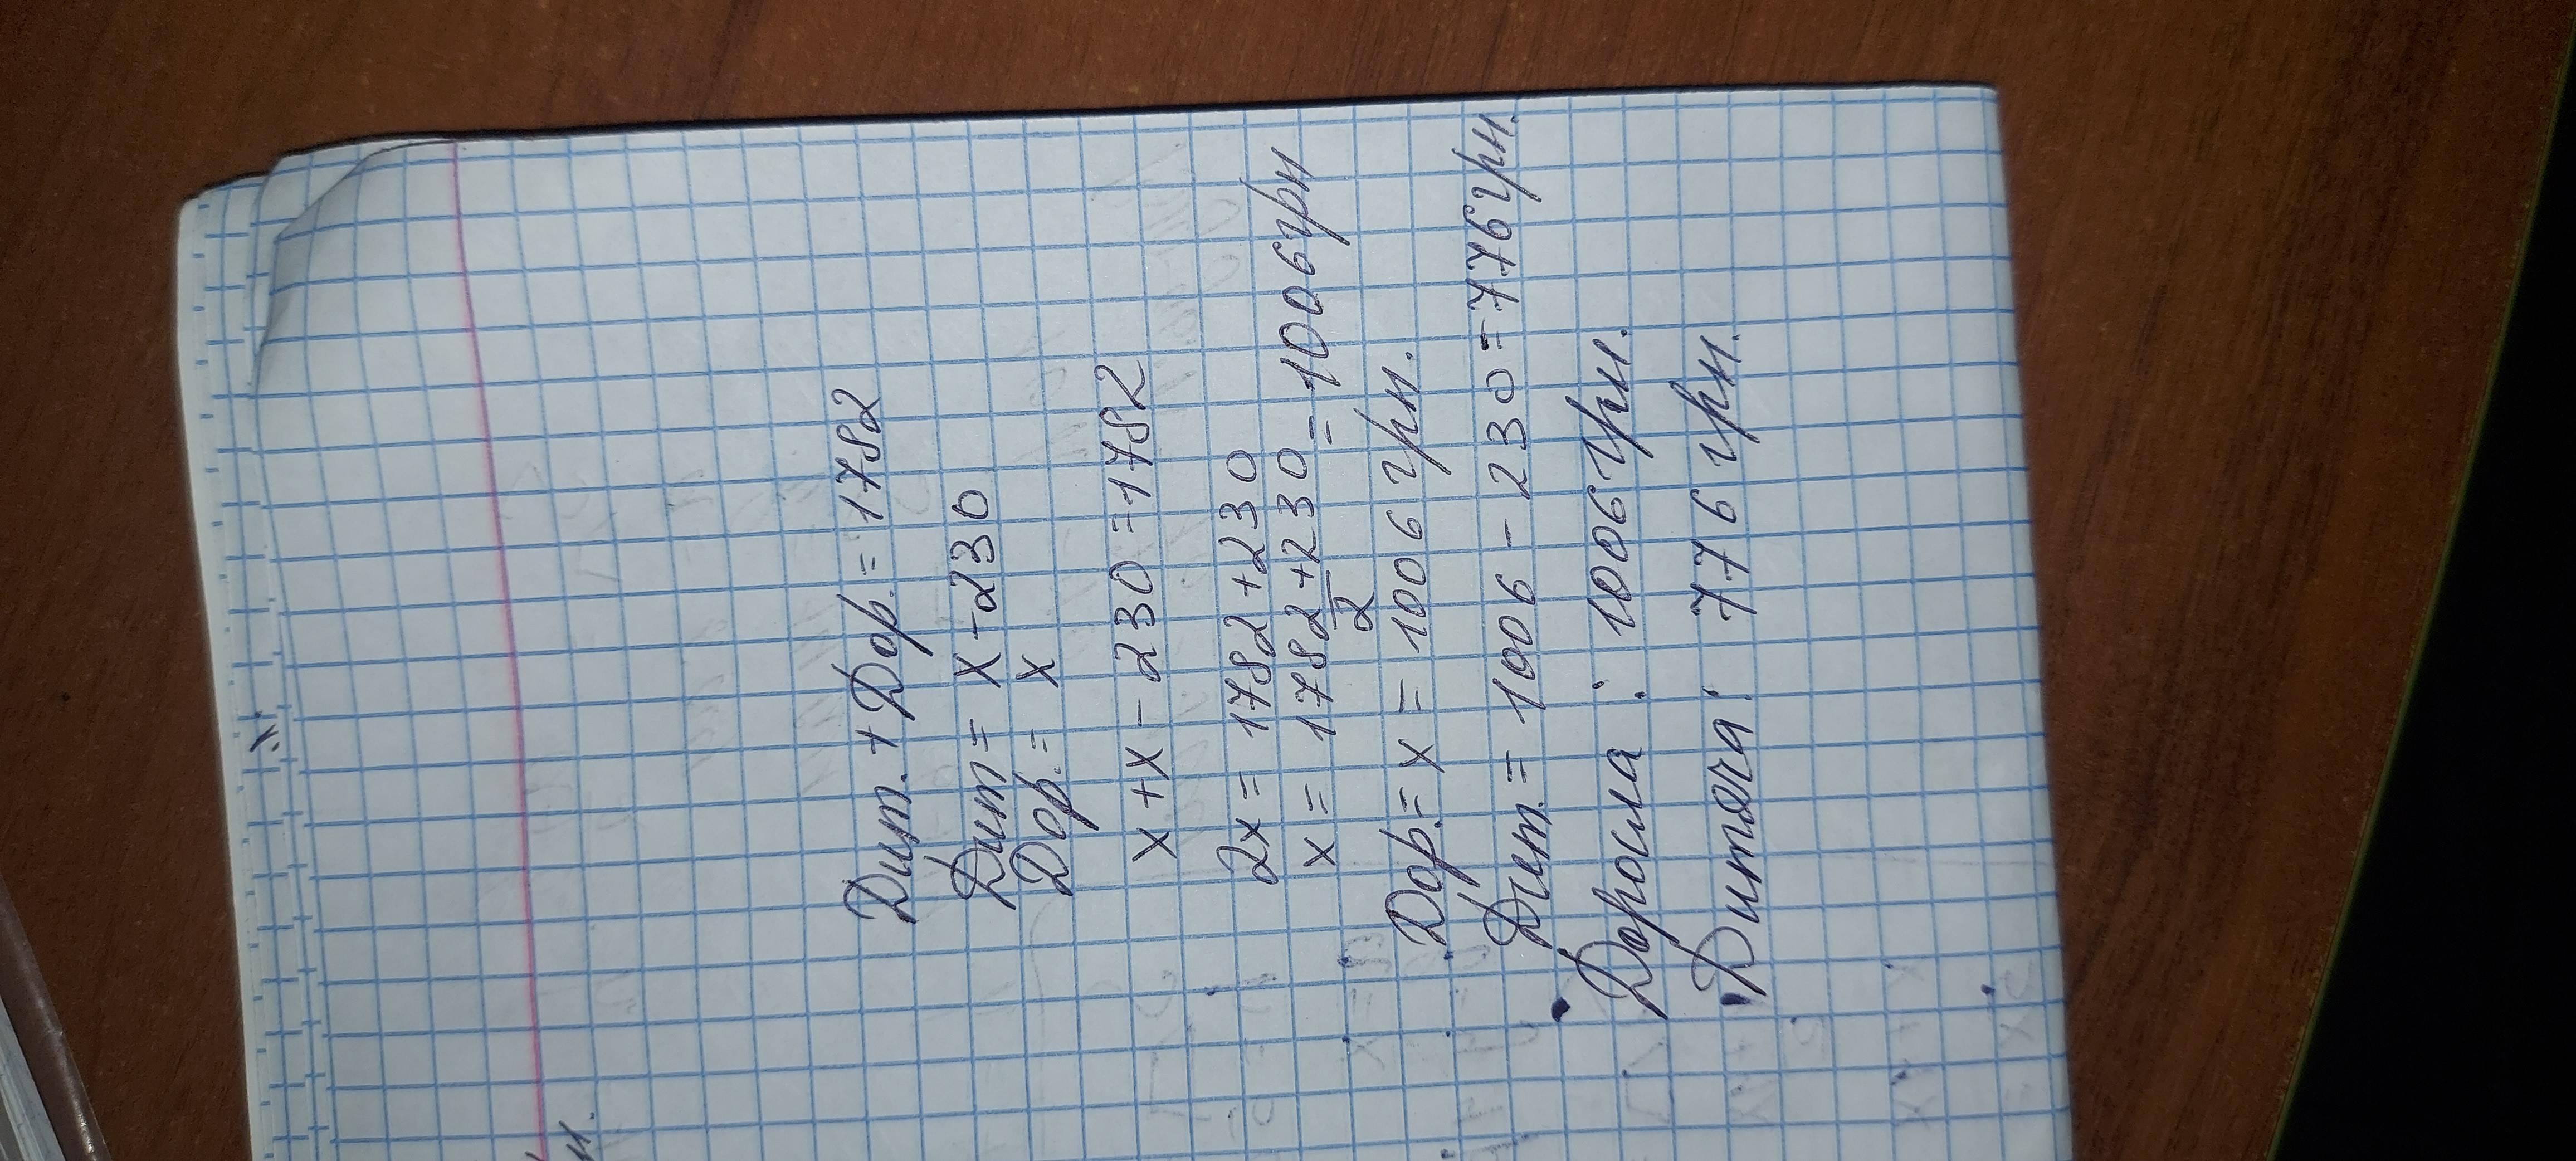 Дит. + Дор. = 1782
Дит = х - 230
Дор. = х
х + х - 230 = 1782
2х = 1782 + 230
х = 1782 + 230 / 2 = 1006 грн
Дор. = х = 1006 грн.
Дит. = 1006 - 230 = 776 грн.
Доросла : 1006 грн.
Дитяча : 776 грн.